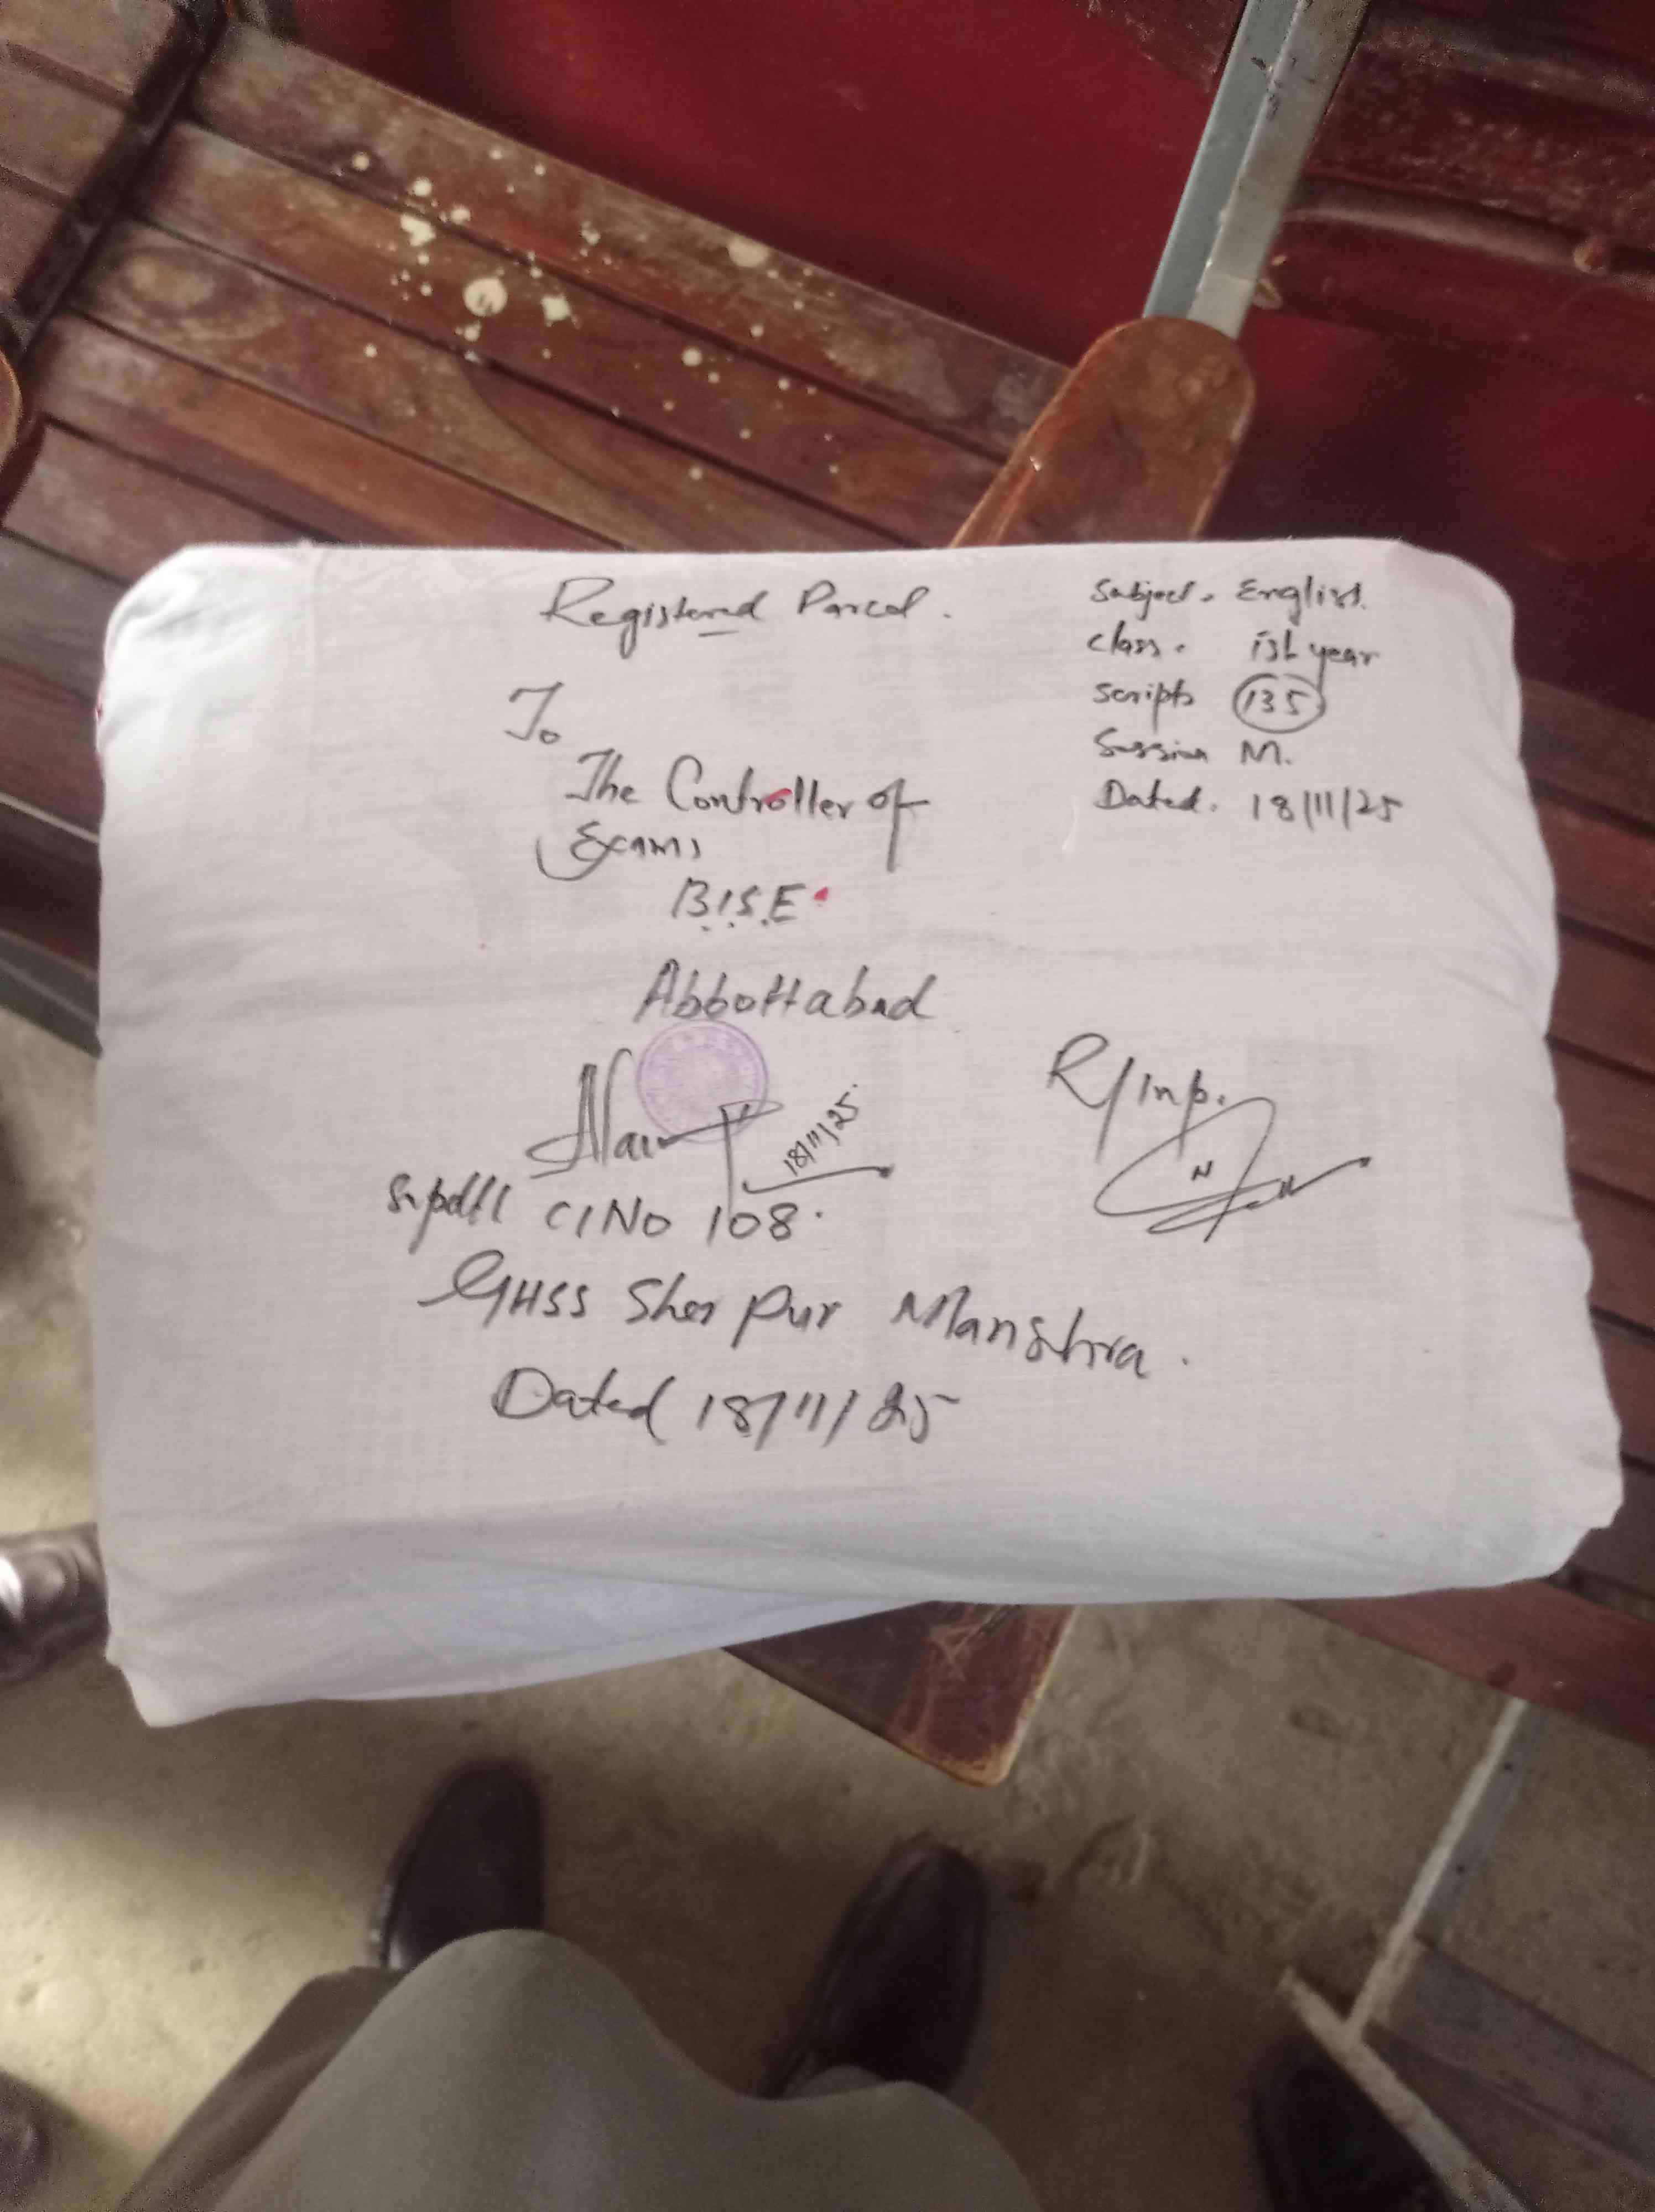 Registered Parcel.
Subject. English.
class. ist year
scripts 135
Session M.
Dated. 18/11/25
To
The Controller of
Exams
B.I.S.E.
Abbottabad
18/11/25
R/Inp.
Supdtt C/No 108.
GHSS Sher Pur Mansehra.
Dated 18/11/25